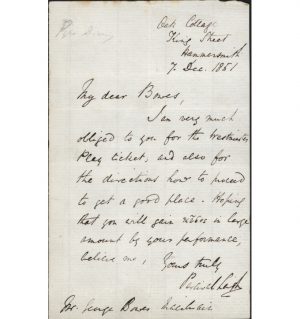 Oak Cottage
King Street
Hammersmith
7 Dec. 1861
My dear Bowes,
I am very much
obliged to you for the Westminster
Play ticket, and also for
the directions how to proceed
to get a good place. Hoping
that you will gain in large
amount by your performance,
believe me,
Yours truly
Percival
Mr. George Bowes